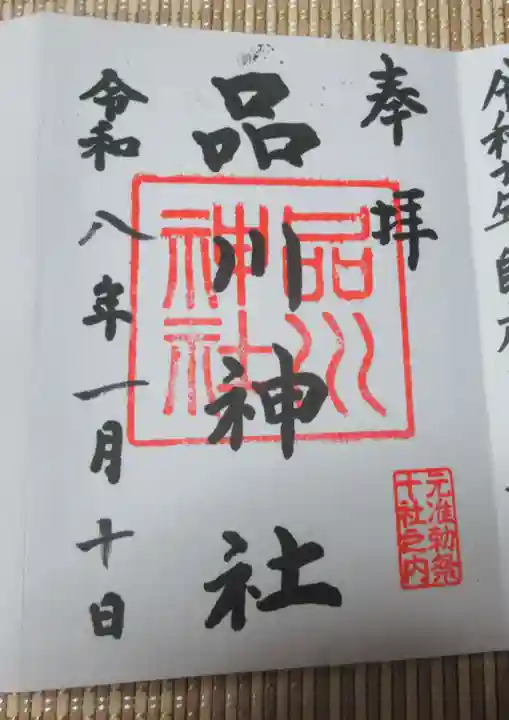 奉拝
品川神社
令和八年一月十日
品川神社
元准勅祭
十社之内